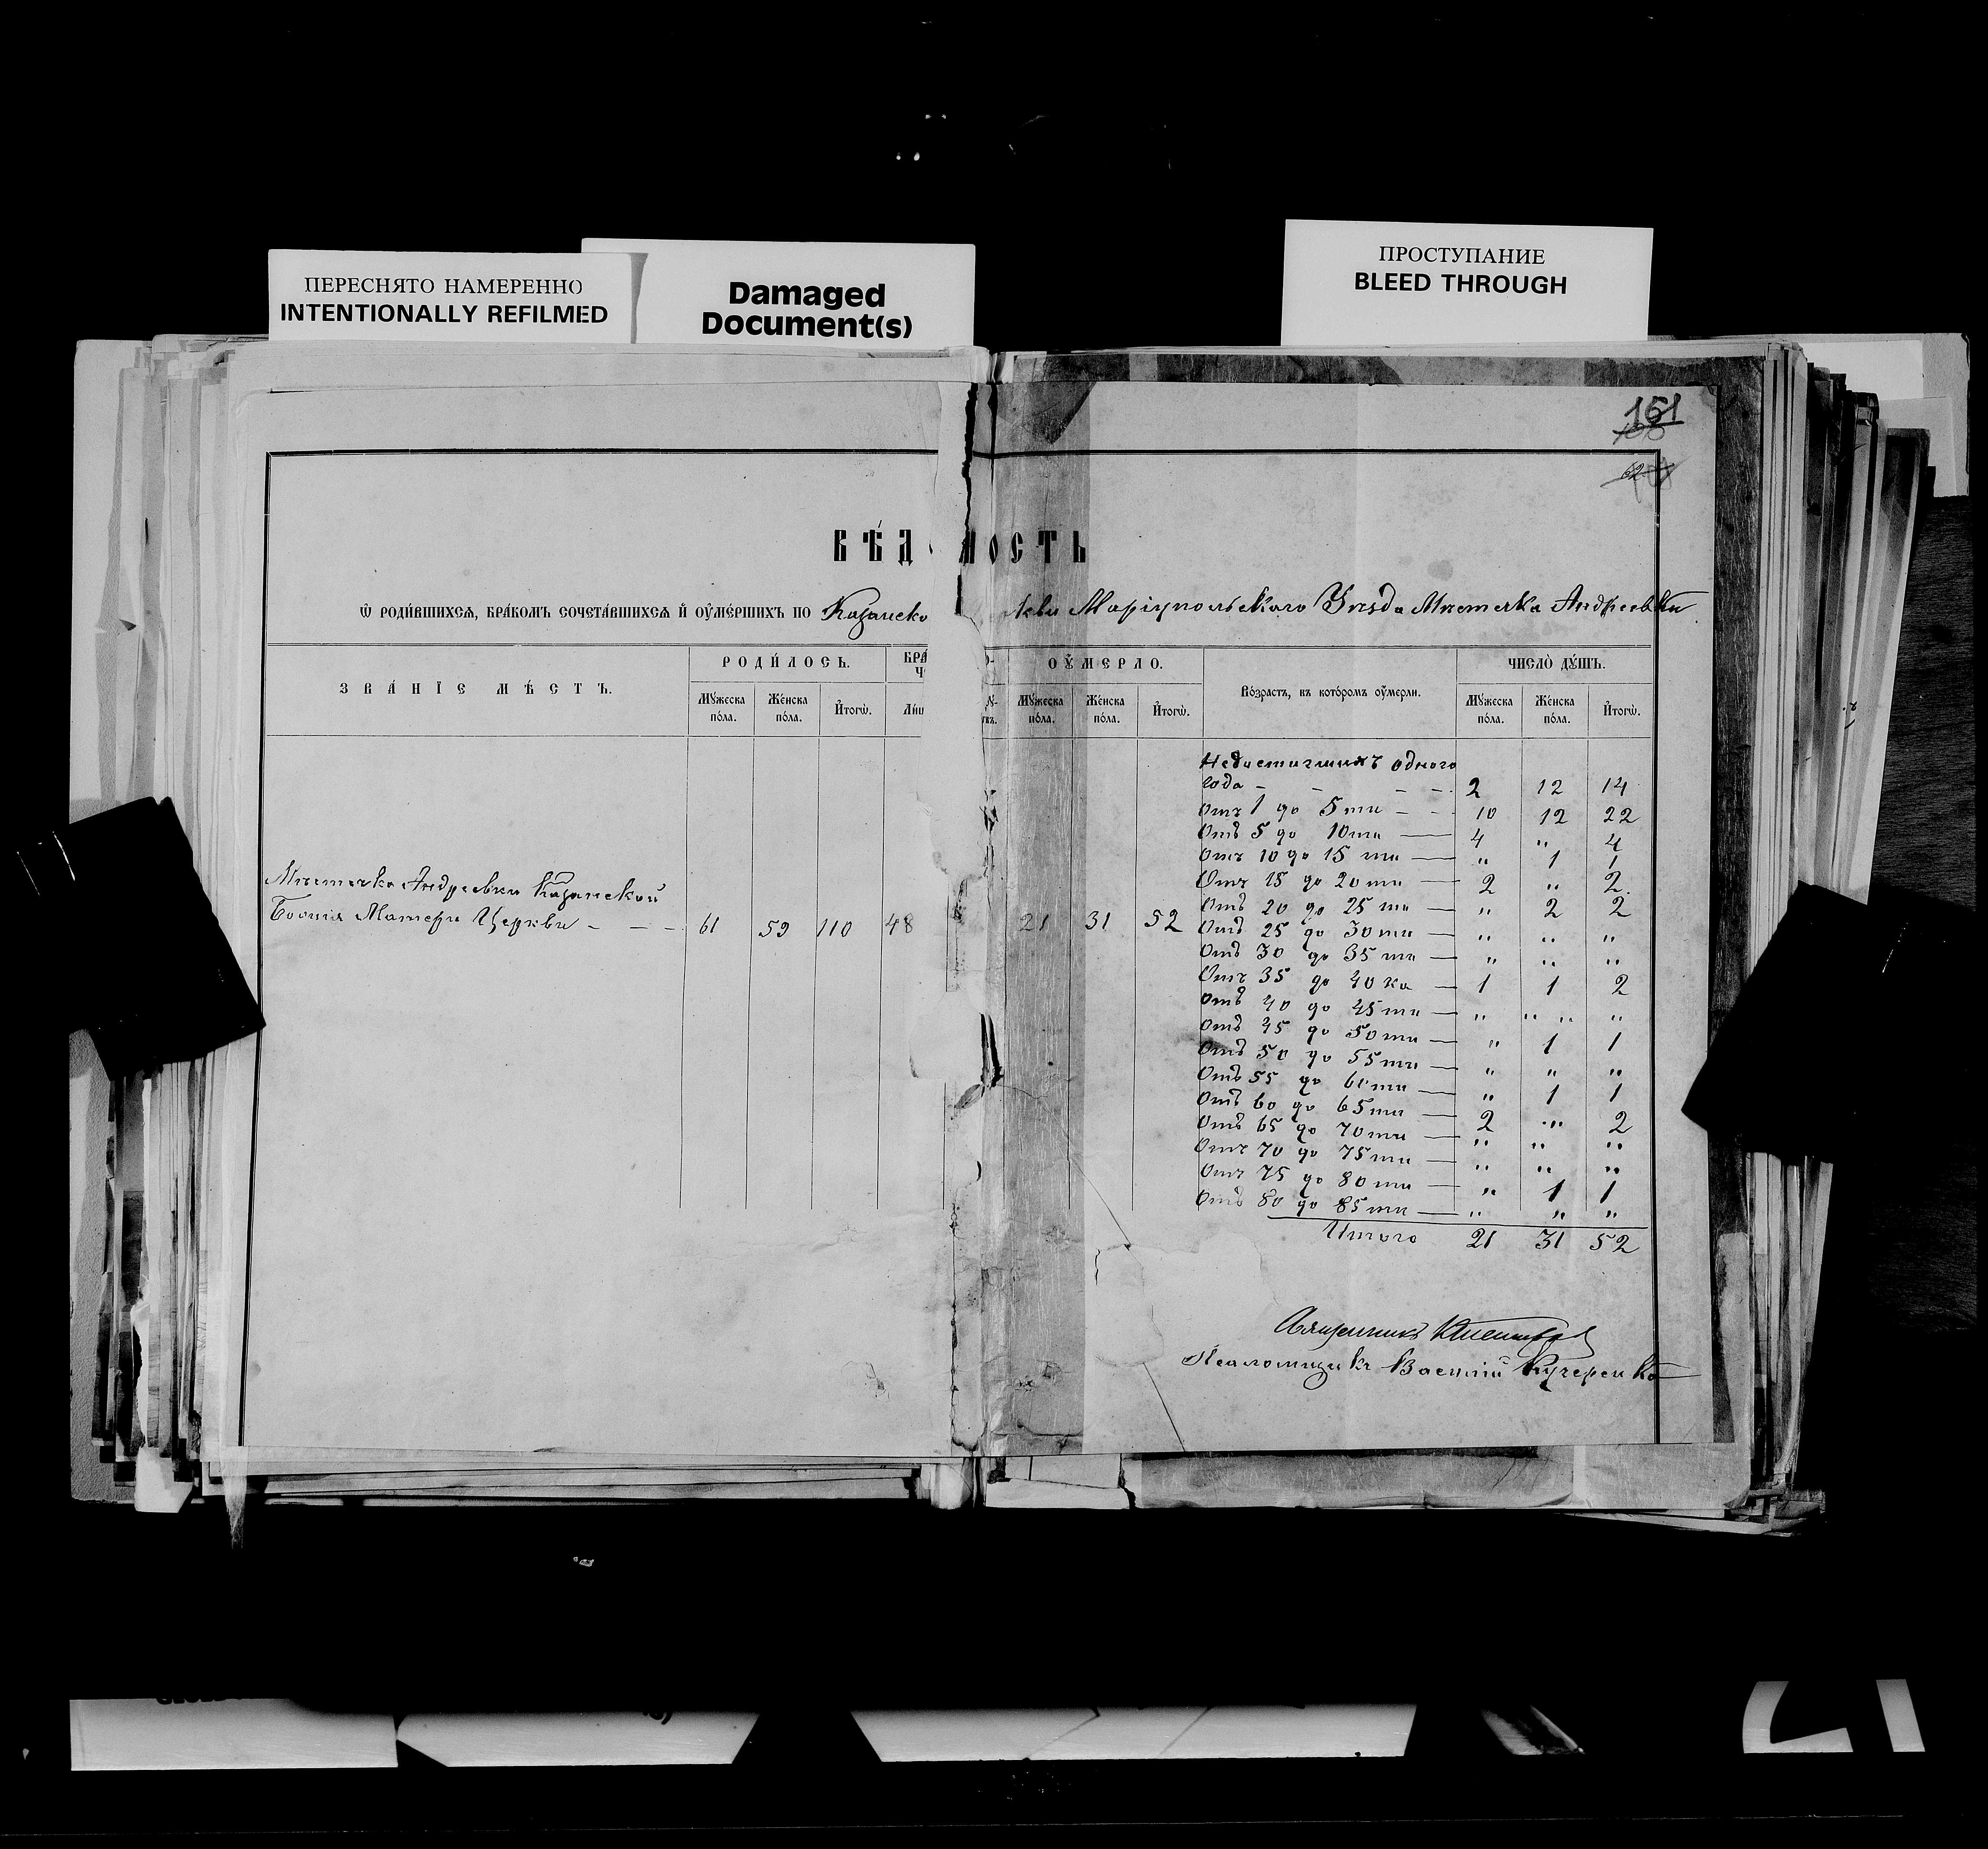 ПЕРЕСНЯТО НАМЕРЕННО
INTENTIONALLY REFILMED
Damaged
Document(s)
ПРОСТУПАНИЕ
BLEED THROUGH
151
62
ВѢ́Д МОСТЬ
Ѡ РОДИ́ВШИХСѦ, БРА́КОМЪ СОЧЕТА́ВШИХСѦ И҆ ОУ҆МЕ́РШИХЪ ПО Казанско кви Маріупольскаго Уѣзда Мѣстечка Андреевки
ЗВА́НІЕ МѢ́СТЪ.
РОДИ́ЛОСЬ.
БРА́
ОУ҆́МЕРЛО.
Во́зрастъ, въ кото́ромъ оу҆мерли.
ЧИСЛО̀ ДУ́ШЪ.
Му́жеска по́ла.
Же́нска по́ла.
И҆тогѡ̀.
Му́жеска по́ла.
Же́нска по́ла.
И҆тогѡ̀.
Му́жеска по́ла.
Же́нска по́ла.
И҆тогѡ̀.
Мѣстечка Андреевки Казанской
Божія Матери Церкви - - - 61 59 110 48 21 31 52
Недостигшихъ одного
года - - - - 2 12 14
Отъ 1 до 5 ти - - 10 12 22
Отъ 5 до 10 ти — 4 " 4
Отъ 10 до 15 ти — " 1 1
Отъ 15 до 20 ти — 2 " 2
Отъ 20 до 25 ти — " 2 2
Отъ 25 до 30 ти — " " "
Отъ 30 до 35 ти — " " "
Отъ 35 до 40 ка — 1 1 2
Отъ 40 до 45 ти — " " "
Отъ 45 до 50 ти — " 1 1
Отъ 50 до 55 ти — " " "
Отъ 55 до 60 ти — " 1 1
Отъ 60 до 65 ти — 2 " 2
Отъ 65 до 70 ти — " " "
Отъ 70 до 75 ти — " " "
Отъ 75 до 80 ти — " 1 1
Отъ 80 до 85 ти — " " "
Итого 21 31 52
Священникъ
Псаломщикъ Василій Кучеренко